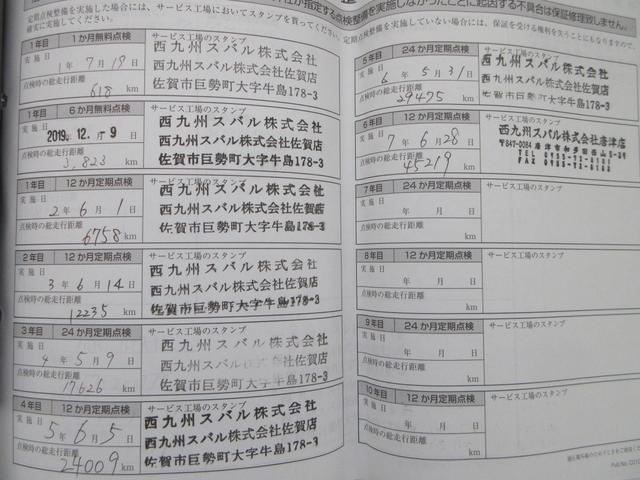 定期点検整備を実施した場合には、サービス工場においてスタンプを買ってください。定期点検整備を実施していない場合には、保証を受ける権利を失うことにもなりますので、
確実に実施してください。
1年目 1か月無料点検
実施日 1年7月19日
点検時の総走行距離 618 km
サービス工場のスタンプ
西九州スバル株式会社
西九州スバル株式会社佐賀店
佐賀市巨勢町大字牛島178-3
1年目 6か月無料点検
実施日 2019.12.-9日
点検時の総走行距離 3,823 km
サービス工場のスタンプ
西九州スバル株式会社
西九州スバル株式会社佐賀店
佐賀市巨勢町大字牛島178-3
1年目 12か月定期点検
実施日 2年6月1日
点検時の総走行距離 6758 km
サービス工場のスタンプ
西九州スバル株式会社
西九州スバル株式会社佐賀店
佐賀市巨勢町大字牛島178-3
2年目 12か月定期点検
実施日 3年6月14日
点検時の総走行距離 12235 km
サービス工場のスタンプ
西九州スバル株式会社
西九州スバル株式会社佐賀店
佐賀市巨勢町大字牛島178-3
3年目 24か月定期点検
実施日 4年5月9日
点検時の総走行距離 17626 km
サービス工場のスタンプ
西九州スバル株式会社
西九州スバル株式会社佐賀店
佐賀市巨勢町大字牛島178-3
4年目 12か月定期点検
実施日 5年6月5日
点検時の総走行距離 24009 km
サービス工場のスタンプ
西九州スバル株式会社
西九州スバル株式会社佐賀店
佐賀市巨勢町大字牛島178-3
点検整備を実施しなかったことに起因する不具合は保証修理致しません。
5年目 24か月定期点検
実施日 6年5月31日
点検時の総走行距離 29475 km
サービス工場のスタンプ
西九州スバル株式会社
西九州スバル株式会社佐賀店
佐賀市巨勢町大字牛島178-3
6年目 12か月定期点検
実施日 7年6月28日
点検時の総走行距離 45219 km
サービス工場のスタンプ
西九州スバル株式会社唐津店
〒847-0084
7年目 24か月定期点検
実施日 年月日
点検時の総走行距離 km
サービス工場のスタンプ
8年目 12か月定期点検
実施日 年月日
点検時の総走行距離 km
サービス工場のスタンプ
9年目 24か月定期点検
実施日 年月日
点検時の総走行距離 km
サービス工場のスタンプ
10年目 12か月定期点検
実施日 年月日
点検時の総走行距離 km
サービス工場のスタンプ